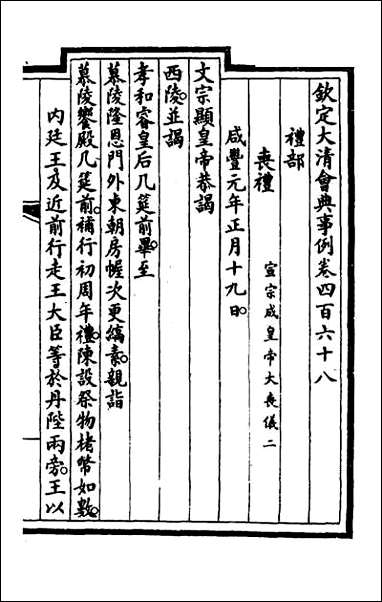 欽定大清會典事例卷四百六十八
禮部
喪禮 宣宗成皇帝大喪儀二
咸豐元年正月十九日。
文宗顯皇帝恭謁
西陵。並謁
孝和睿皇后几筵前畢。至
慕陵隆恩門外東朝房幄次更縞素。親詣
慕陵饗殿几筵前。補行初周年禮。陳設祭物楮帛如數。
內廷王及近前行走王大臣等於丹陛兩旁。王以